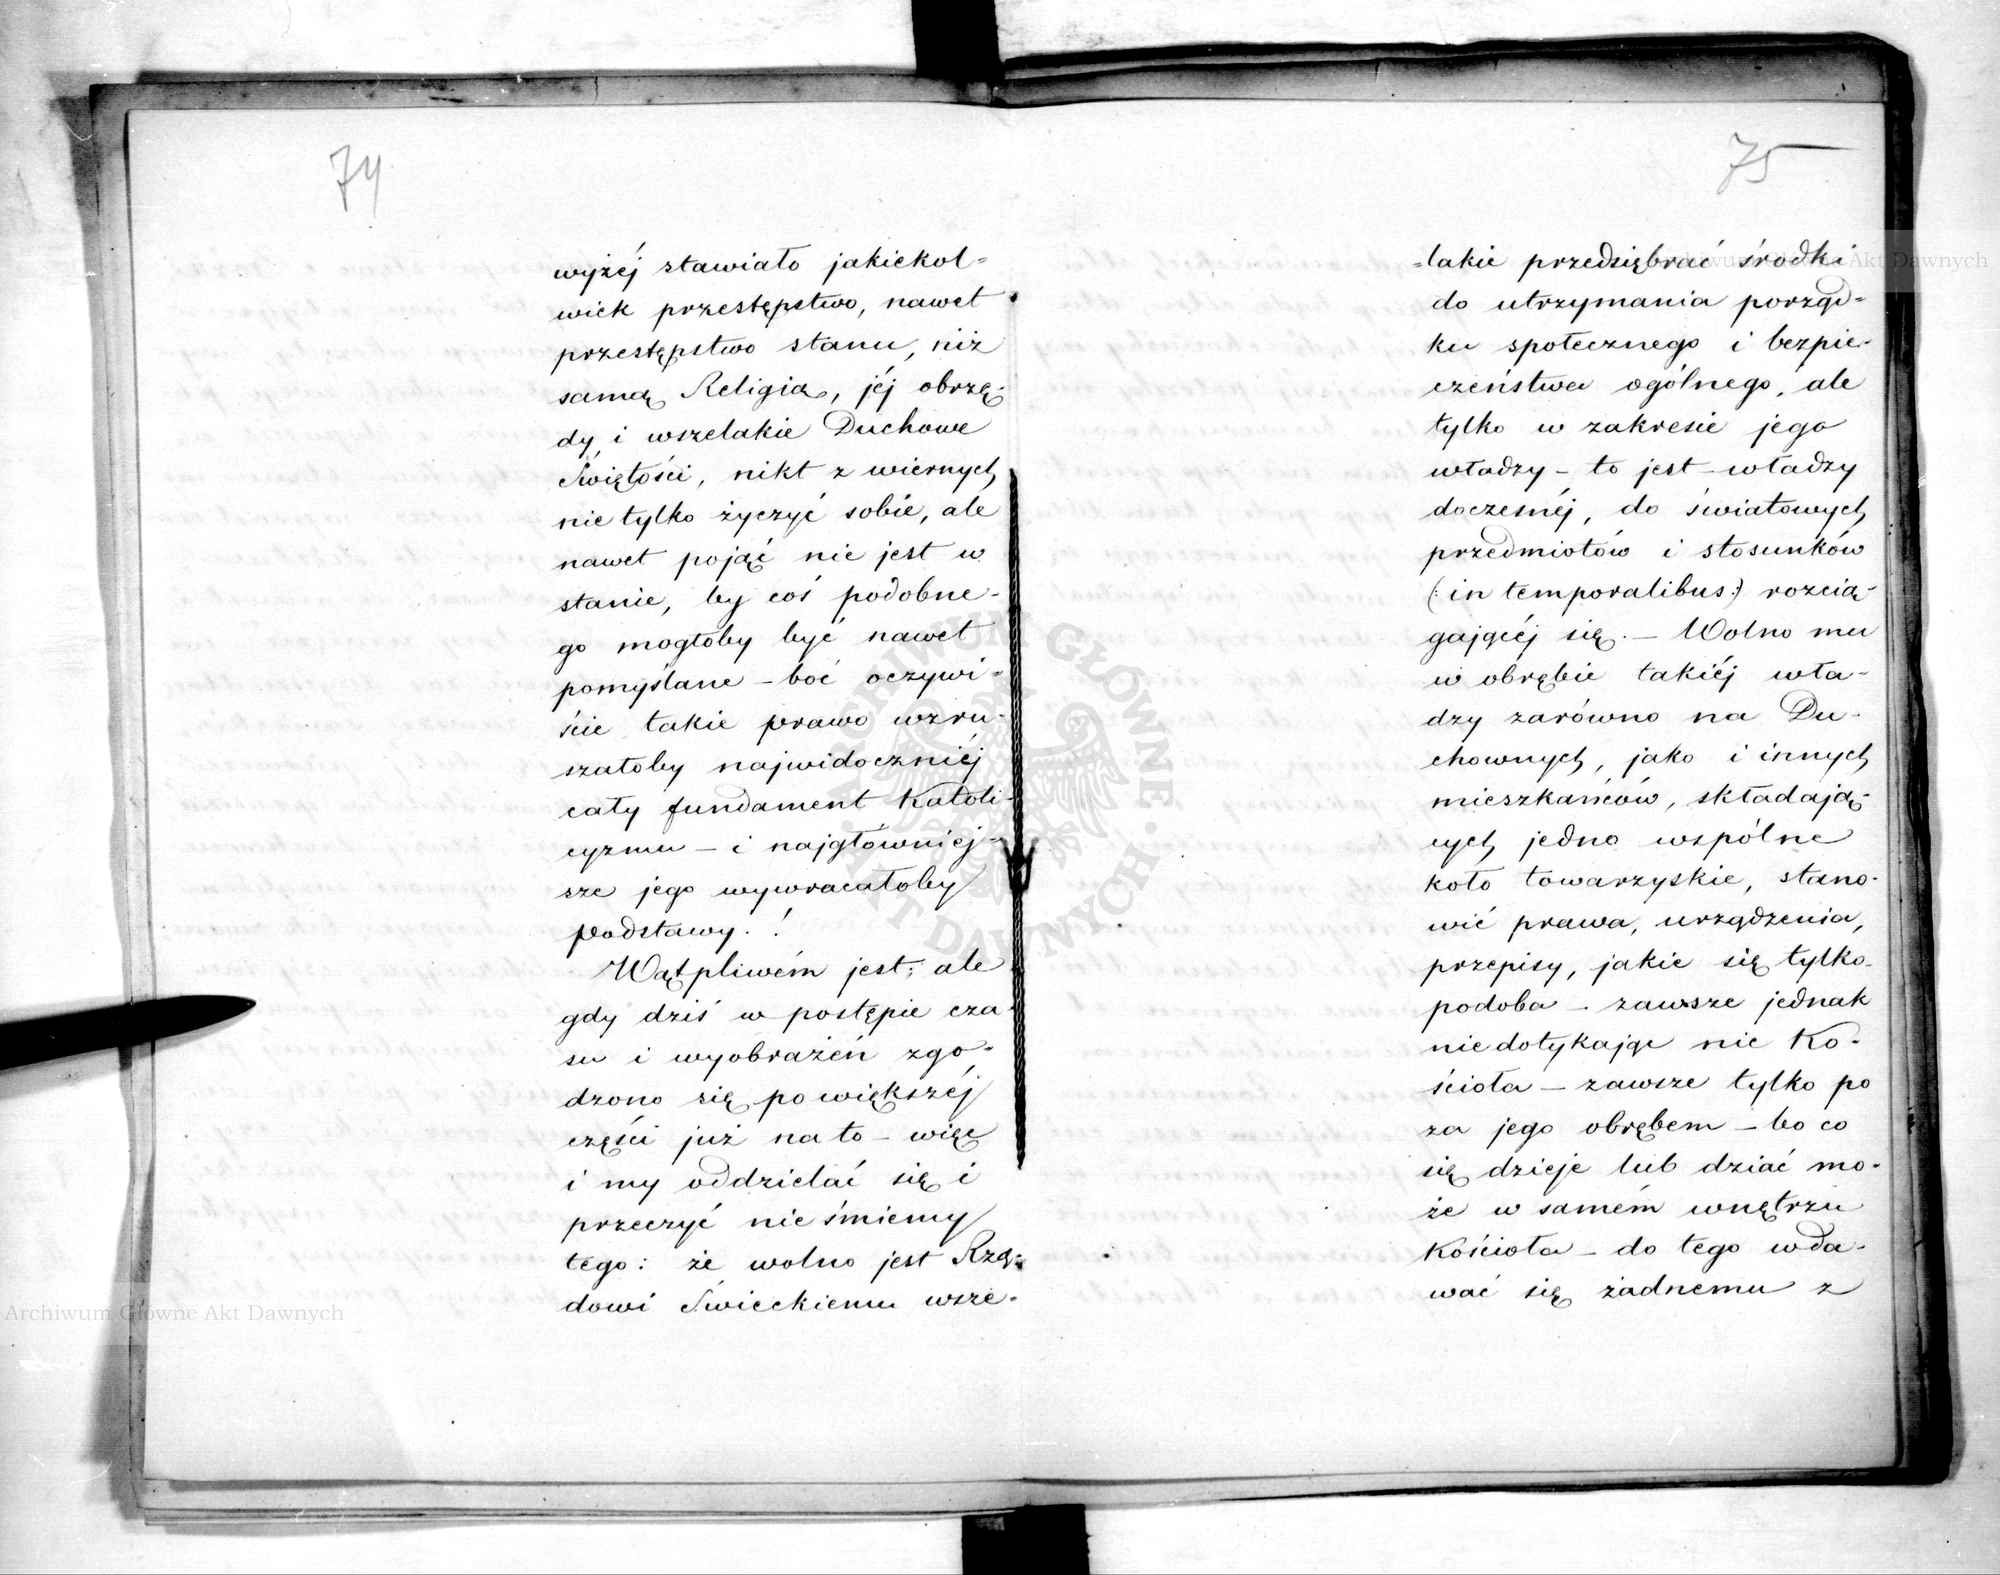 74
wyżéj stawiało jakiekol=
wiek przestępstwo, nawet
przestępstwo stanu, niż
samą Religią, jéj obrzę-
dy i wszelakie Duchowe
Świętości, nikt z wiernych
nie tylko życzyć sobie, ale
nawet pojąć nie jest w
stanie, by coś podobne-
go mogłoby być nawet
pomyślane - boć oczywi-
ście takie prawo wzru-
szałoby najwidoczniéj
cały fundament Katoli-
cyzmu - i najgłówniej-
sze jego wywracałoby
podstawy.!
Wątpliwém jest; ale
gdy dziś w postępie cza-
su i wyobrażeń zgo-
dzono się po większéj
części już na to - więc
i my oddzielać się i
przeczyć nie śmiemy
tego: że wolno jest Rzą-
dowi Świeckiemu wsze-
75
=lakie przedsiębrać środki
do utrzymania porząd=
ku społecznego i bezpie-
czeństwa ogólnego, ale
tylko w zakresie jego
władzy - to jest władzy
doczesnéj, do światowych
przedmiotów i stosunków
(: in temporalibus :) rozcią-
gającéj się. - Wolno mu
w obrębie takiéj wła-
dzy zarówno na Du-
chownych, jako i innych
mieszkańców, składają-
cych jedno wspólne
koło towarzyskie, stano-
wić prawa, urządzenia,
przepisy, jakie się tylko
podoba - zawsze jednak
niedotykając nic Ko-
ścioła - zawsze tylko po
za jego obrębem - bo co
się dzieje lub dziać mo-
że w samém wnętrzu
Kościoła - do tego wda-
wać się żadnemu z
Archiwum Główne Akt Dawnych
Archiwum Główne Akt Dawnych
ARCHIWUM GŁÓWNE AKT DAWNYCH